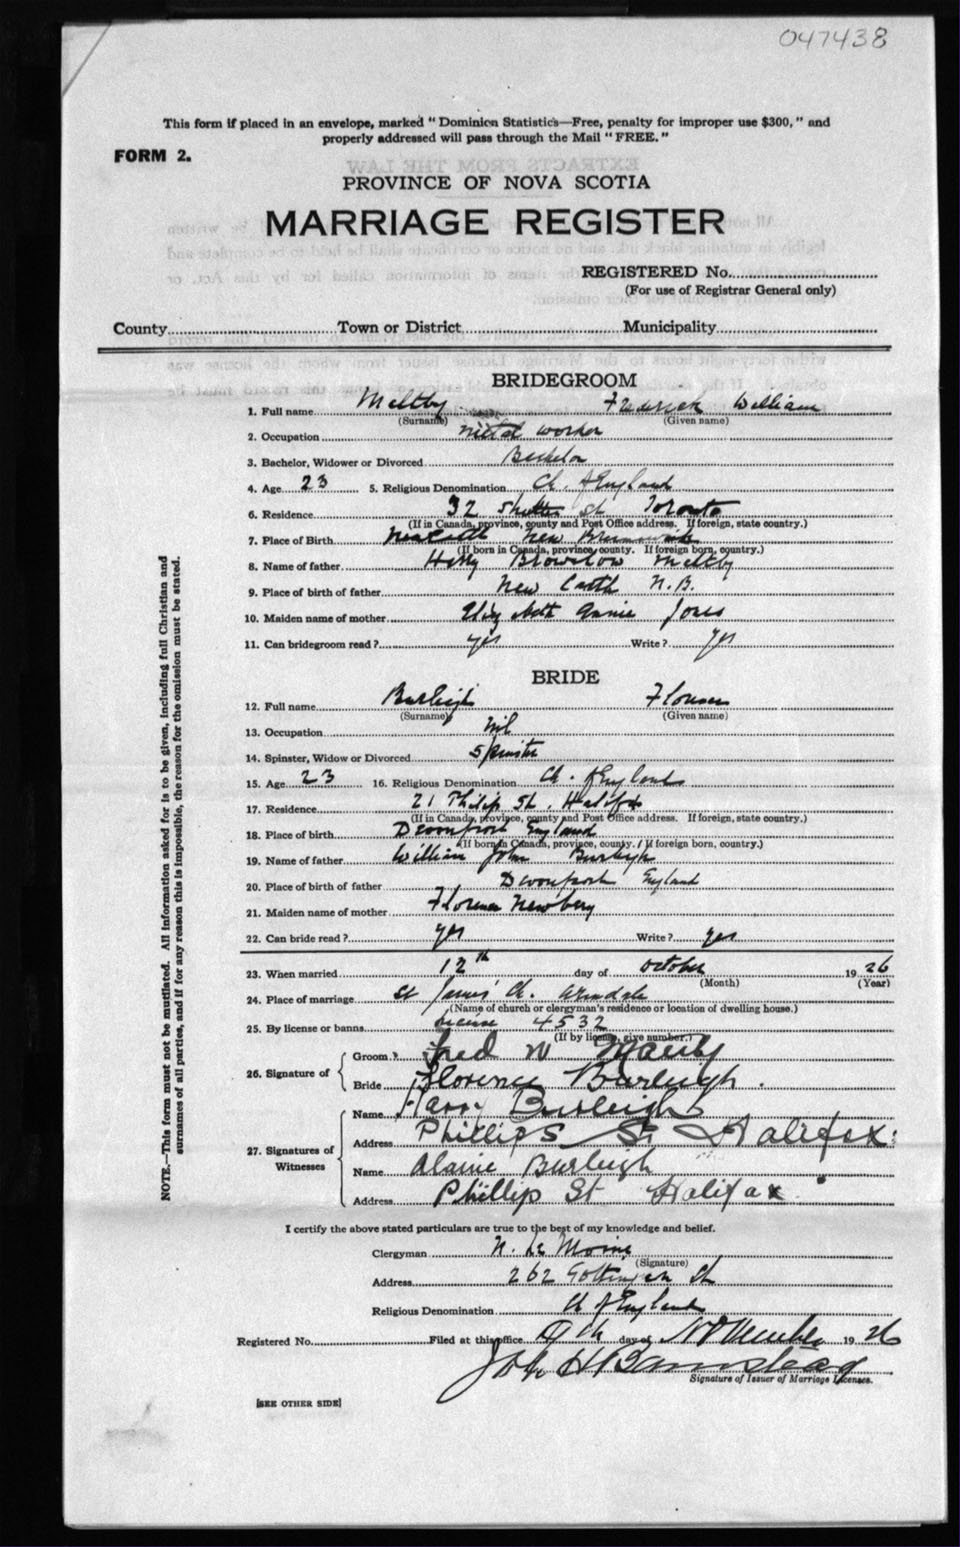 047438
This form if placed in an envelope, marked "Dominion Statistics—Free, penalty for improper use $300," and
properly addressed will pass through the Mail "FREE."
FORM 2.
EXTRACTS FROM THE LAW
PROVINCE OF NOVA SCOTIA
MARRIAGE REGISTER
REGISTERED No.
(For use of Registrar General only)
County Town or District Municipality
BRIDEGROOM
1. Full name Meltby Frederick William
(Surname) (Given name)
2. Occupation metal worker
3. Bachelor, Widower or Divorced Bachelor
4. Age 23 5. Religious Denomination Ch. of England
6. Residence 32 Shutter St Toronto
(If in Canada, province, county and Post Office address. If foreign, state country.)
7. Place of Birth New Brunswick
(If born in Canada, province, county. If foreign born, country.)
8. Name of father Brownlow Meltby
9. Place of birth of father New N.B.
10. Maiden name of mother Elizabeth Annie Jones
11. Can bridegroom read? yes Write? yes
BRIDE
12. Full name Burleigh Florence
(Surname) (Given name)
13. Occupation Nil
14. Spinster, Widow or Divorced Spinster
15. Age 23 16. Religious Denomination Ch. of England
17. Residence 21 Philip St. Halifax
(If in Canada, province, county and Post Office address. If foreign, state country.)
18. Place of birth Devonport England
(If born in Canada, province, county. If foreign born, country.)
19. Name of father William John Burleigh
20. Place of birth of father Devonport England
21. Maiden name of mother Florence Newbery
22. Can bride read? yes Write? yes
23. When married 12th day of October 1926
(Month) (Year)
24. Place of marriage St James' Ch. Armdale
(Name of church or clergyman's residence or location of dwelling house.)
25. By license or banns license 4532
(If by license, give number.)
26. Signature of
Groom Fred W
Bride Florence Burleigh.
27. Signatures of Witnesses
Name Harry Burleigh
Address Phillips St Halifax
Name Burleigh
Address Phillip St Halifax
I certify the above stated particulars are true to the best of my knowledge and belief.
Clergyman N. Le Moine
(Signature)
Address 262 Gottingen St
Religious Denomination Ch of England
Registered No. Filed at this office day of November 1926
Barnstead
Signature of Issuer of Marriage Licenses.
[SEE OTHER SIDE]
NOTE.—This form must not be mutilated. All information asked for is to be given, including full Christian and
surnames of all parties, and if for any reason this is impossible, the reason for the omission must be stated.